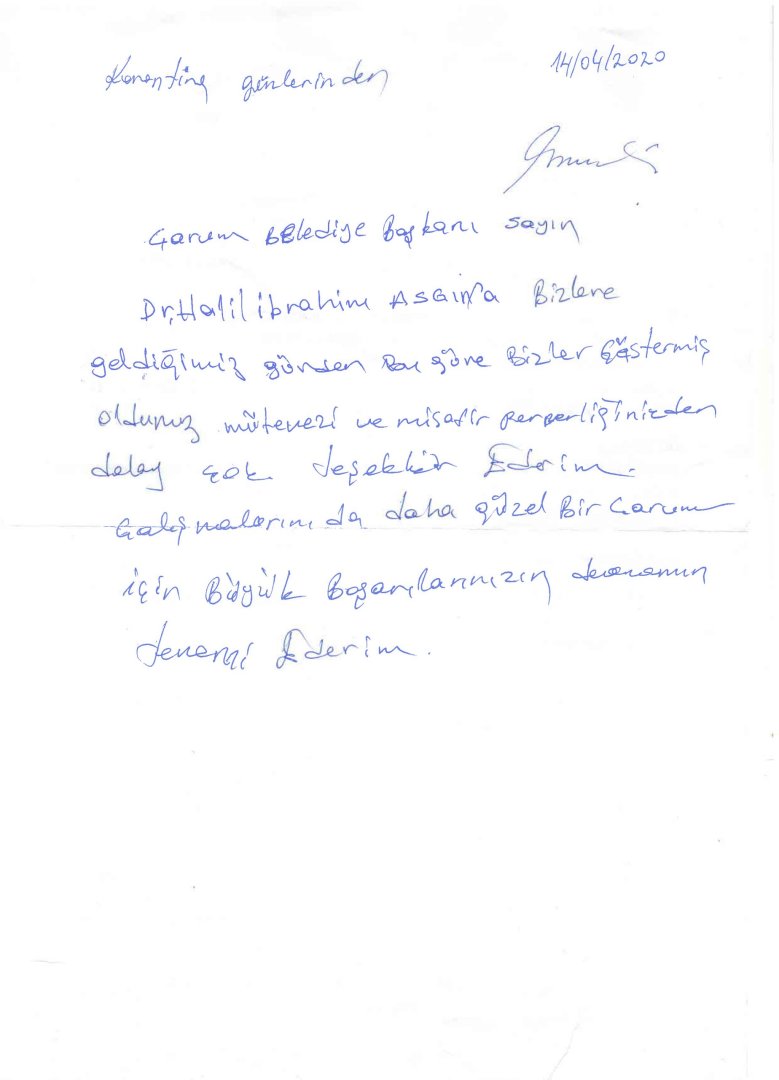 Karantina günlerinden 14/04/2020
Çorum Belediye Başkanı Sayın
Dr. Halil ibrahim ASGIN'a Bizlere
geldiğimiz günden Bu güne Bizler göstermiş
oldunuz mütevezi ve misafir perperliğinizden
dolay çok teşekkür Ederim.
Çalışmalarını da daha güzel Bir Çorum
için Büyük Başarılarınızın devamının
temenni Ederim.